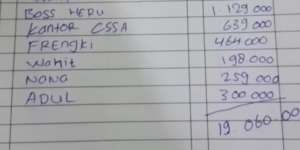 BOSS HERU 1.129 000
KANTOR CSSA 639 000
FRENGKI 464 000
WAHIT 198 000
NANA 259 000
ADUL 300 000
19 060 00